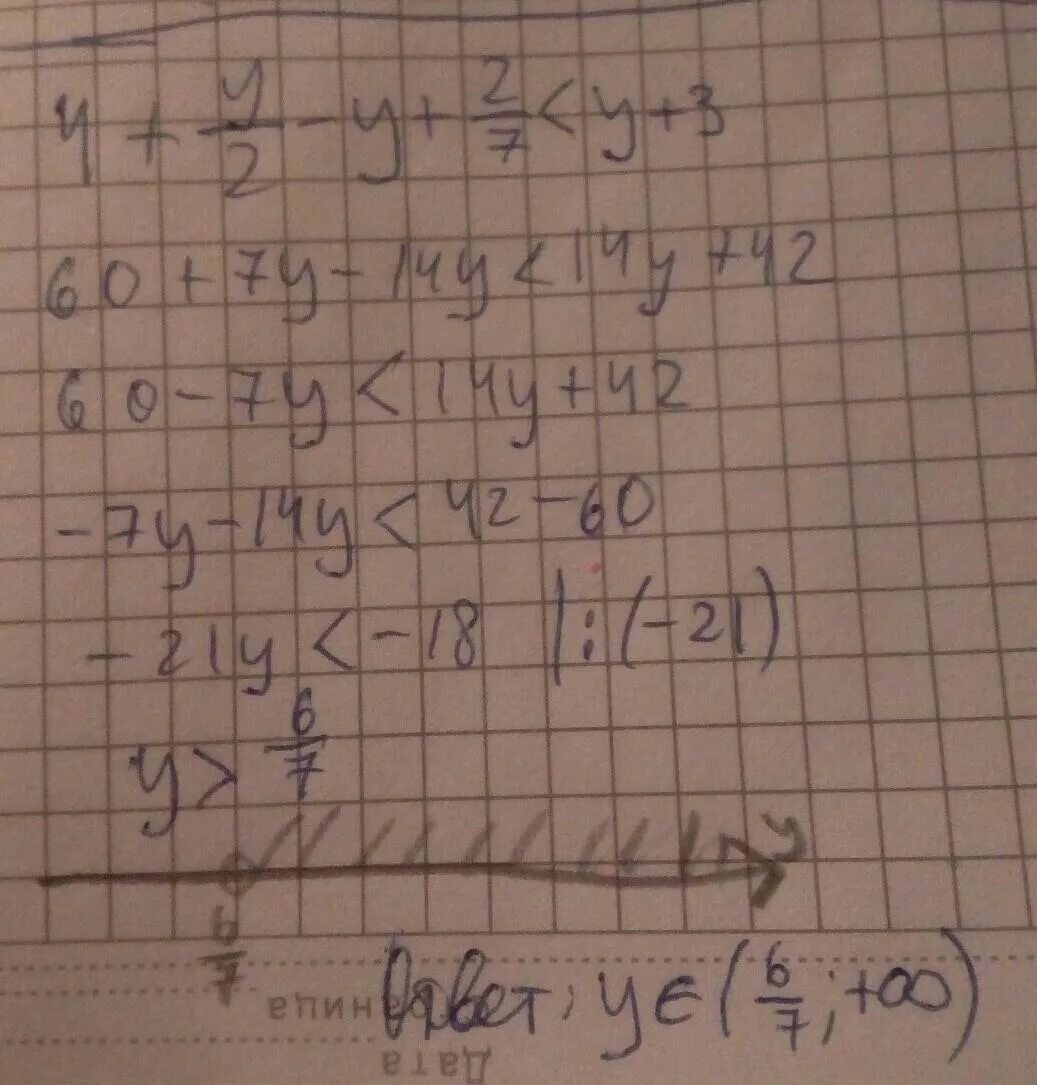 4 + y/2 - y + 2/7 < y + 3
60 + 7y - 14y < 14y + 42
60 - 7y < 14y + 42
-7y - 14y < 42 - 60
-21y < -18 |:(-21)
y > 6/7
y
6/7
Ответ: y ∈ (6/7; +∞)
ница
Дата